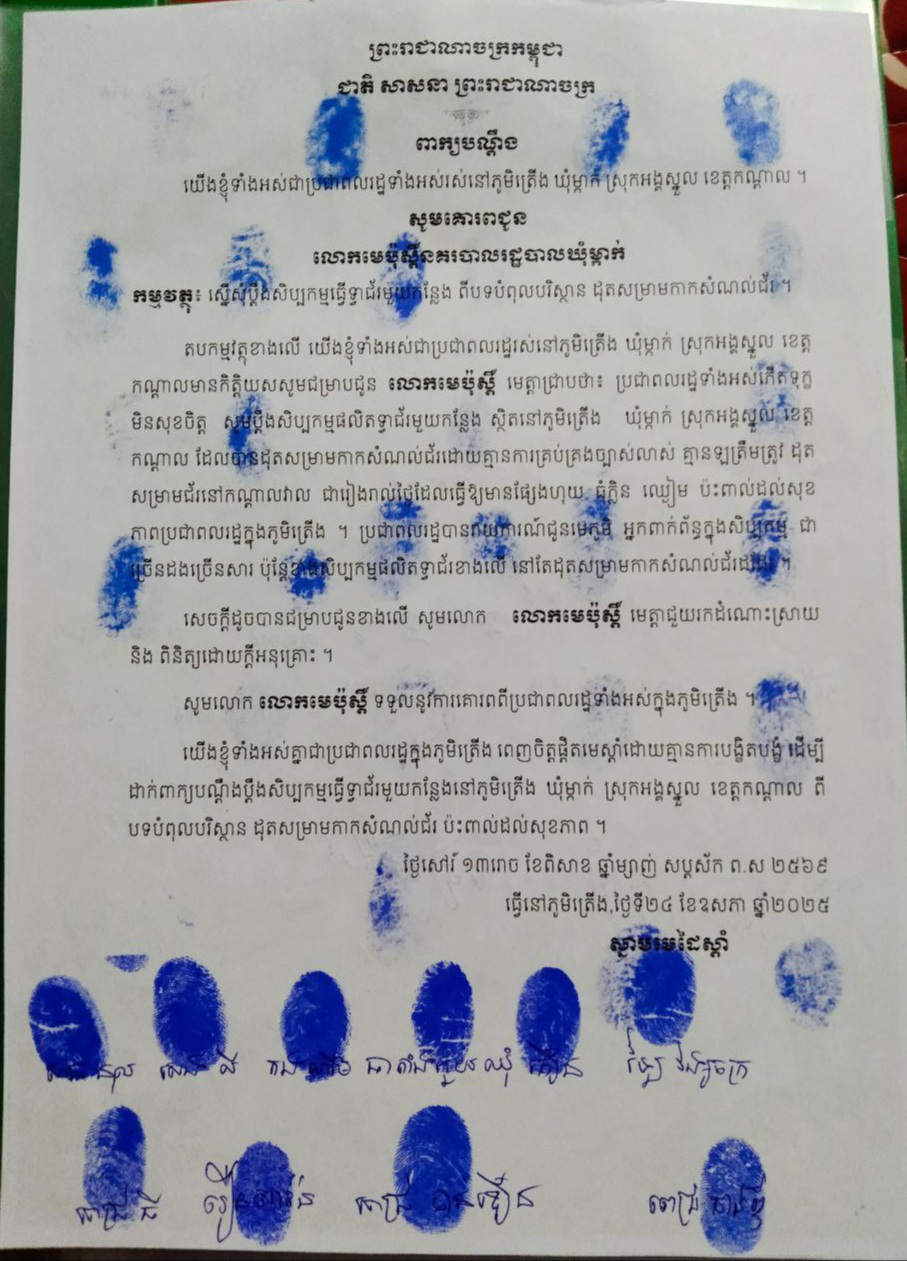 ព្រះរាជាណាចក្រកម្ពុជា
ជាតិ សាសនា ព្រះរាជាណាចក្រ
ពាក្យបណ្ដឹង
យើងខ្ញុំទាំងអស់ជាប្រជាពលរដ្ឋទាំងអស់រស់នៅភូមិត្រើង ឃុំម្កាក់ ស្រុកអង្គស្នួល ខេត្តកណ្ដាល ។
សូមគោរពជូន
លោកមេប៉ុស្តិ៍នគរបាលរដ្ឋបាលឃុំម្កាក់
កម្មវត្ថុ៖ ស្នើសុំប្ដឹងសិប្បកម្មធ្វើទ្វាជ័រមួយកន្លែង ពីបទបំពុលបរិស្ថាន ដុតសម្រាមកាកសំណល់ជ័រ ។
តបកម្មវត្ថុខាងលើ យើងខ្ញុំទាំងអស់ជាប្រជាពលរដ្ឋរស់នៅភូមិត្រើង ឃុំម្កាក់ ស្រុកអង្គស្នួល ខេត្ត
កណ្ដាលមានកិត្តិយសសូមជម្រាបជូន លោកមេប៉ុស្តិ៍ មេត្តាជ្រាបថា៖ ប្រជាពលរដ្ឋទាំងអស់កើតទុក្ខ
មិនសុខចិត្ត សូមប្ដឹងសិប្បកម្មផលិតទ្វាជ័រមួយកន្លែង ស្ថិតនៅភូមិត្រើង ឃុំម្កាក់ ស្រុកអង្គស្នួល ខេត្ត
កណ្ដាល ដែលបានដុតសម្រាមកាកសំណល់ជ័រដោយគ្មានការគ្រប់គ្រងច្បាស់លាស់ គ្មានឡត្រឹមត្រូវ ដុត
សម្រាមជ័រនៅកណ្ដាលវាល ជារៀងរាល់ថ្ងៃដែលធ្វើឱ្យមានផ្សែងហុយ ធុំក្លិន ឈ្ងៀម ប៉ះពាល់ដល់សុខ
ភាពប្រជាពលរដ្ឋក្នុងភូមិត្រើង ។ ប្រជាពលរដ្ឋបានរាយការណ៍ជូនមេភូមិ អ្នកពាក់ព័ន្ធក្នុងសិប្បកម្ម ជា
ច្រើនដងច្រើនសារ ប៉ុន្តែខាងសិប្បកម្មផលិតទ្វាជ័រខាងលើ នៅតែដុតសម្រាមកាកសំណល់ជ័រដដែរ ។
សេចក្ដីដូចបានជម្រាបជូនខាងលើ សូមលោក លោកមេប៉ុស្តិ៍ មេត្តាជួយរកដំណោះស្រាយ
និង ពិនិត្យដោយក្ដីអនុគ្រោះ ។
សូមលោក លោកមេប៉ុស្តិ៍ ទទួលនូវការគោរពពីប្រជាពលរដ្ឋទាំងអស់ក្នុងភូមិត្រើង ។
យើងខ្ញុំទាំងអស់គ្នាជាប្រជាពលរដ្ឋក្នុងភូមិត្រើង ពេញចិត្តផ្ដិតមេស្ដាំដោយគ្មានការបង្ខិតបង្ខំ ដើម្បី
ដាក់ពាក្យបណ្ដឹងប្ដឹងសិប្បកម្មធ្វើទ្វាជ័រមួយកន្លែងនៅភូមិត្រើង ឃុំម្កាក់ ស្រុកអង្គស្នួល ខេត្តកណ្ដាល ពី
បទបំពុលបរិស្ថាន ដុតសម្រាមកាកសំណល់ជ័រ ប៉ះពាល់ដល់សុខភាព ។
ថ្ងៃសៅរ៍ ១៣រោច ខែពិសាខ ឆ្នាំម្សាញ់ សប្តស័ក ព.ស ២៥៦៩
ធ្វើនៅភូមិត្រើង,ថ្ងៃទី២៤ ខែឧសភា ឆ្នាំ២០២៥
ស្នាមមេដៃស្ដាំ